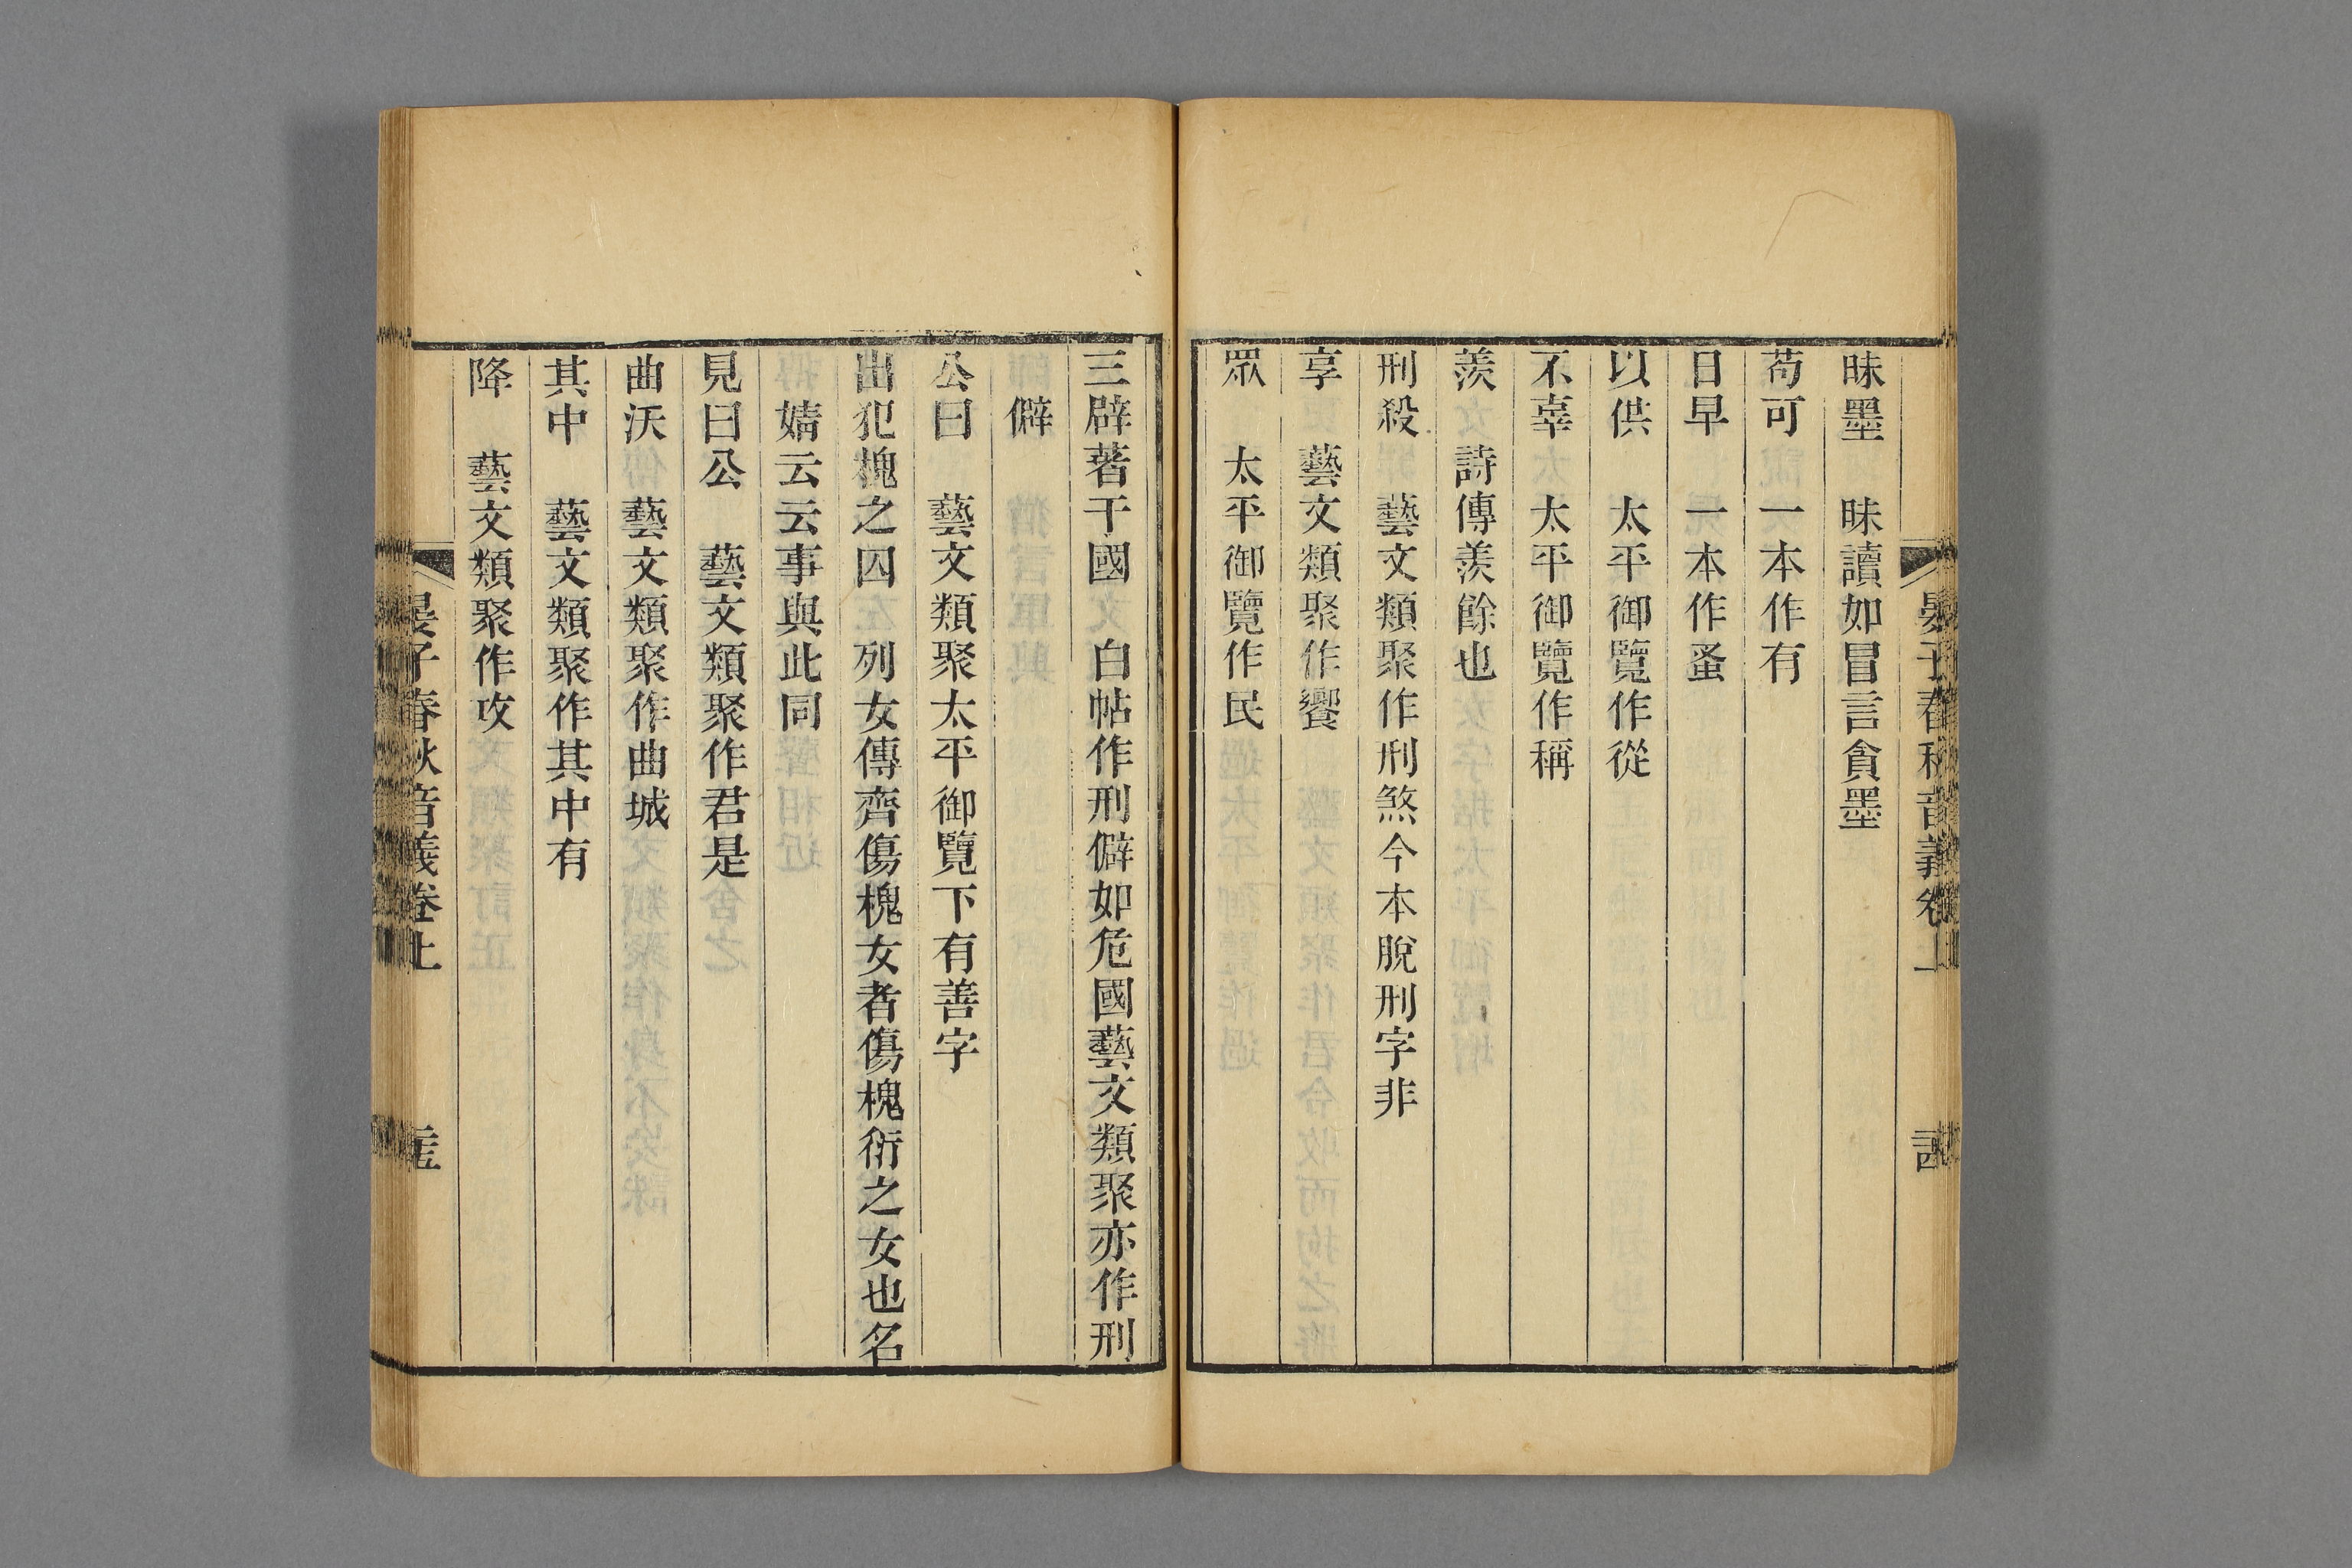 晏子春秋音義卷上
昧墨　昧讀如冒言貪墨
苟可　一本作有
日早　一本作蚤
以供　太平御覽作從
不辜　太平御覽作稱
羨　詩傳羨餘也
刑殺　藝文類聚作刑煞今本脫刑字非
享　藝文類聚作饗
眾　太平御覽作民
三辟著干國　白帖作刑僻如危國藝文類聚亦作刑
僻
公曰　藝文類聚太平御覽下有善字
出犯槐之囚　列女傳齊傷槐女者傷槐衍之女也名
婧云云事與此同
見曰公　藝文類聚作君是
曲沃　藝文類聚作曲城
其中　藝文類聚作其中有
降　藝文類聚作攻
晏子春秋音義卷上